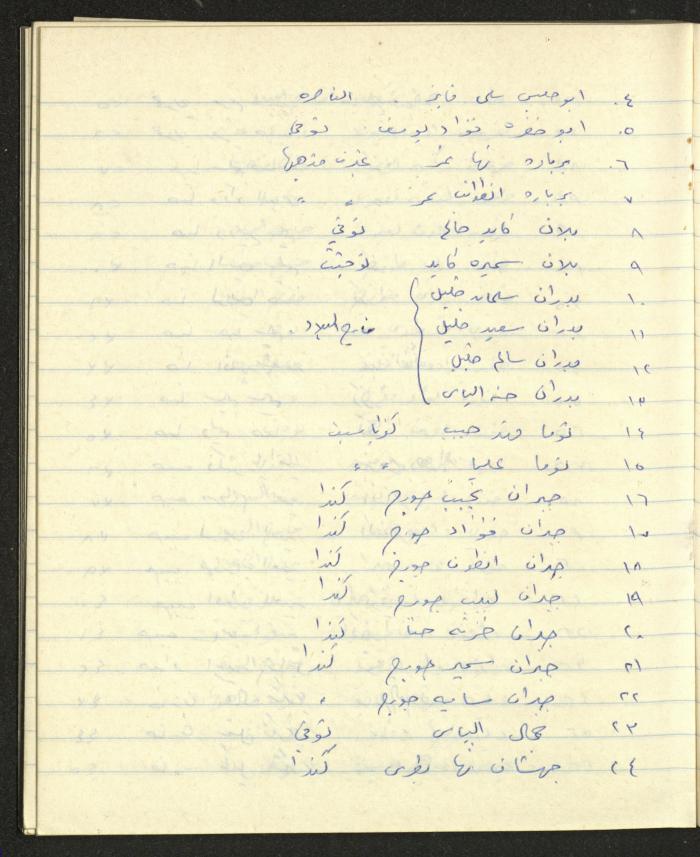 ٤. ابو حلبي سلمى فايز الناصره
٥. ابو خضره فؤاد يوسف توفي
٦. برباره نها عمر
٧ برباره انطوانيت عمر " "
٨ بلان كايد صالح توفي
٩ بلان سميره كايد توفيت
١٠ بدران سليمان خليل
١١ بدران سعيد خليل خارج البلاد
١٢ بدران سالم خليل
١٣ بدران حنه الياس
١٤ توما وديد حبيب
١٥ توما عليا " "
١٦ جبران نجيب جورج كندا
١٧ جبران فؤاد جورج كندا
١٨ جبران انطون جورج كندا
١٩ جبران لبيب جورج كندا
٢٠ جبران خزنه حنا كندا
٢١ جبران سمير جورج كندا
٢٢ جبران ساميه جورج "
٢٣ جمال الياس توفي
٢٤ جهشان مها بطرس كندا